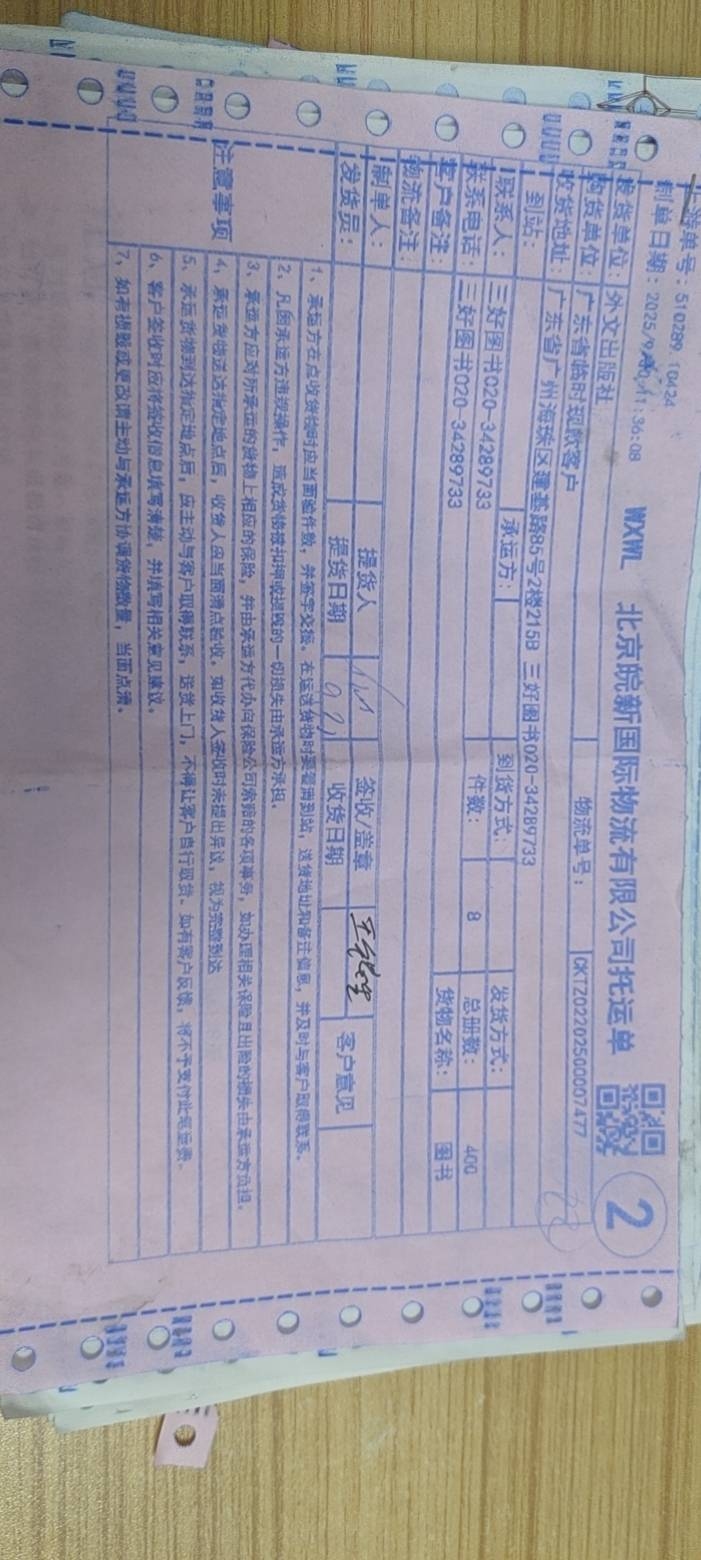 单号：510289.10424
制单日期：2025/9/ 11:36:08
WXWL 北京皖新国际物流有限公司托运单
2
发货单位：外文出版社
购货单位：广东省临时现款客户 物流单号： CKTZ02202500007477
收货地址：广东省广州海珠区建基路85号2楼215B 三好图书020-34289733
到站： 承运方： 到货方式： 发货方式：
联系人：三好图书020-34289733 件数： 8 总册数： 400
联系电话：三好图书020-34289733 货物名称： 图书
客户备注：
物流备注：
制单人： 提货人 签收/盖章 客户意见
发货员： 提货日期 收货日期
注意事项
1、承运方在点收货物时应当面验件数，并签字交接。在运送货物时要看清到站，送货地址和备注信息，并及时与客户取得联系。
2、凡因承运方违规操作，造成货物被扣押或损毁的一切损失由承运方承担。
3、承运方应对所承运的货物上相应的保险，并由承运方代办向保险公司索赔的各项事务，如办理相关保险且出险的损失由承运方负担。
4、承运货物送达指定地点后，收货人应当面清点验收。如收货人签收时未提出异议，视为完整到达
5、承运货物到达指定地点后，应主动与客户取得联系，送货上门，不得让客户自行取货。如有客户反馈，将不予支付此笔运费。
6、客户签收时应将签收信息填写清楚，并填写相关意见建议。
7、如有损毁或更改请主动与承运方协调货物数量，当面点清。